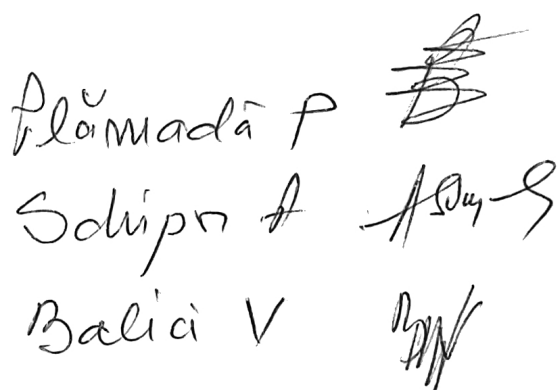 Plămadă P
Schipn A
Balici V